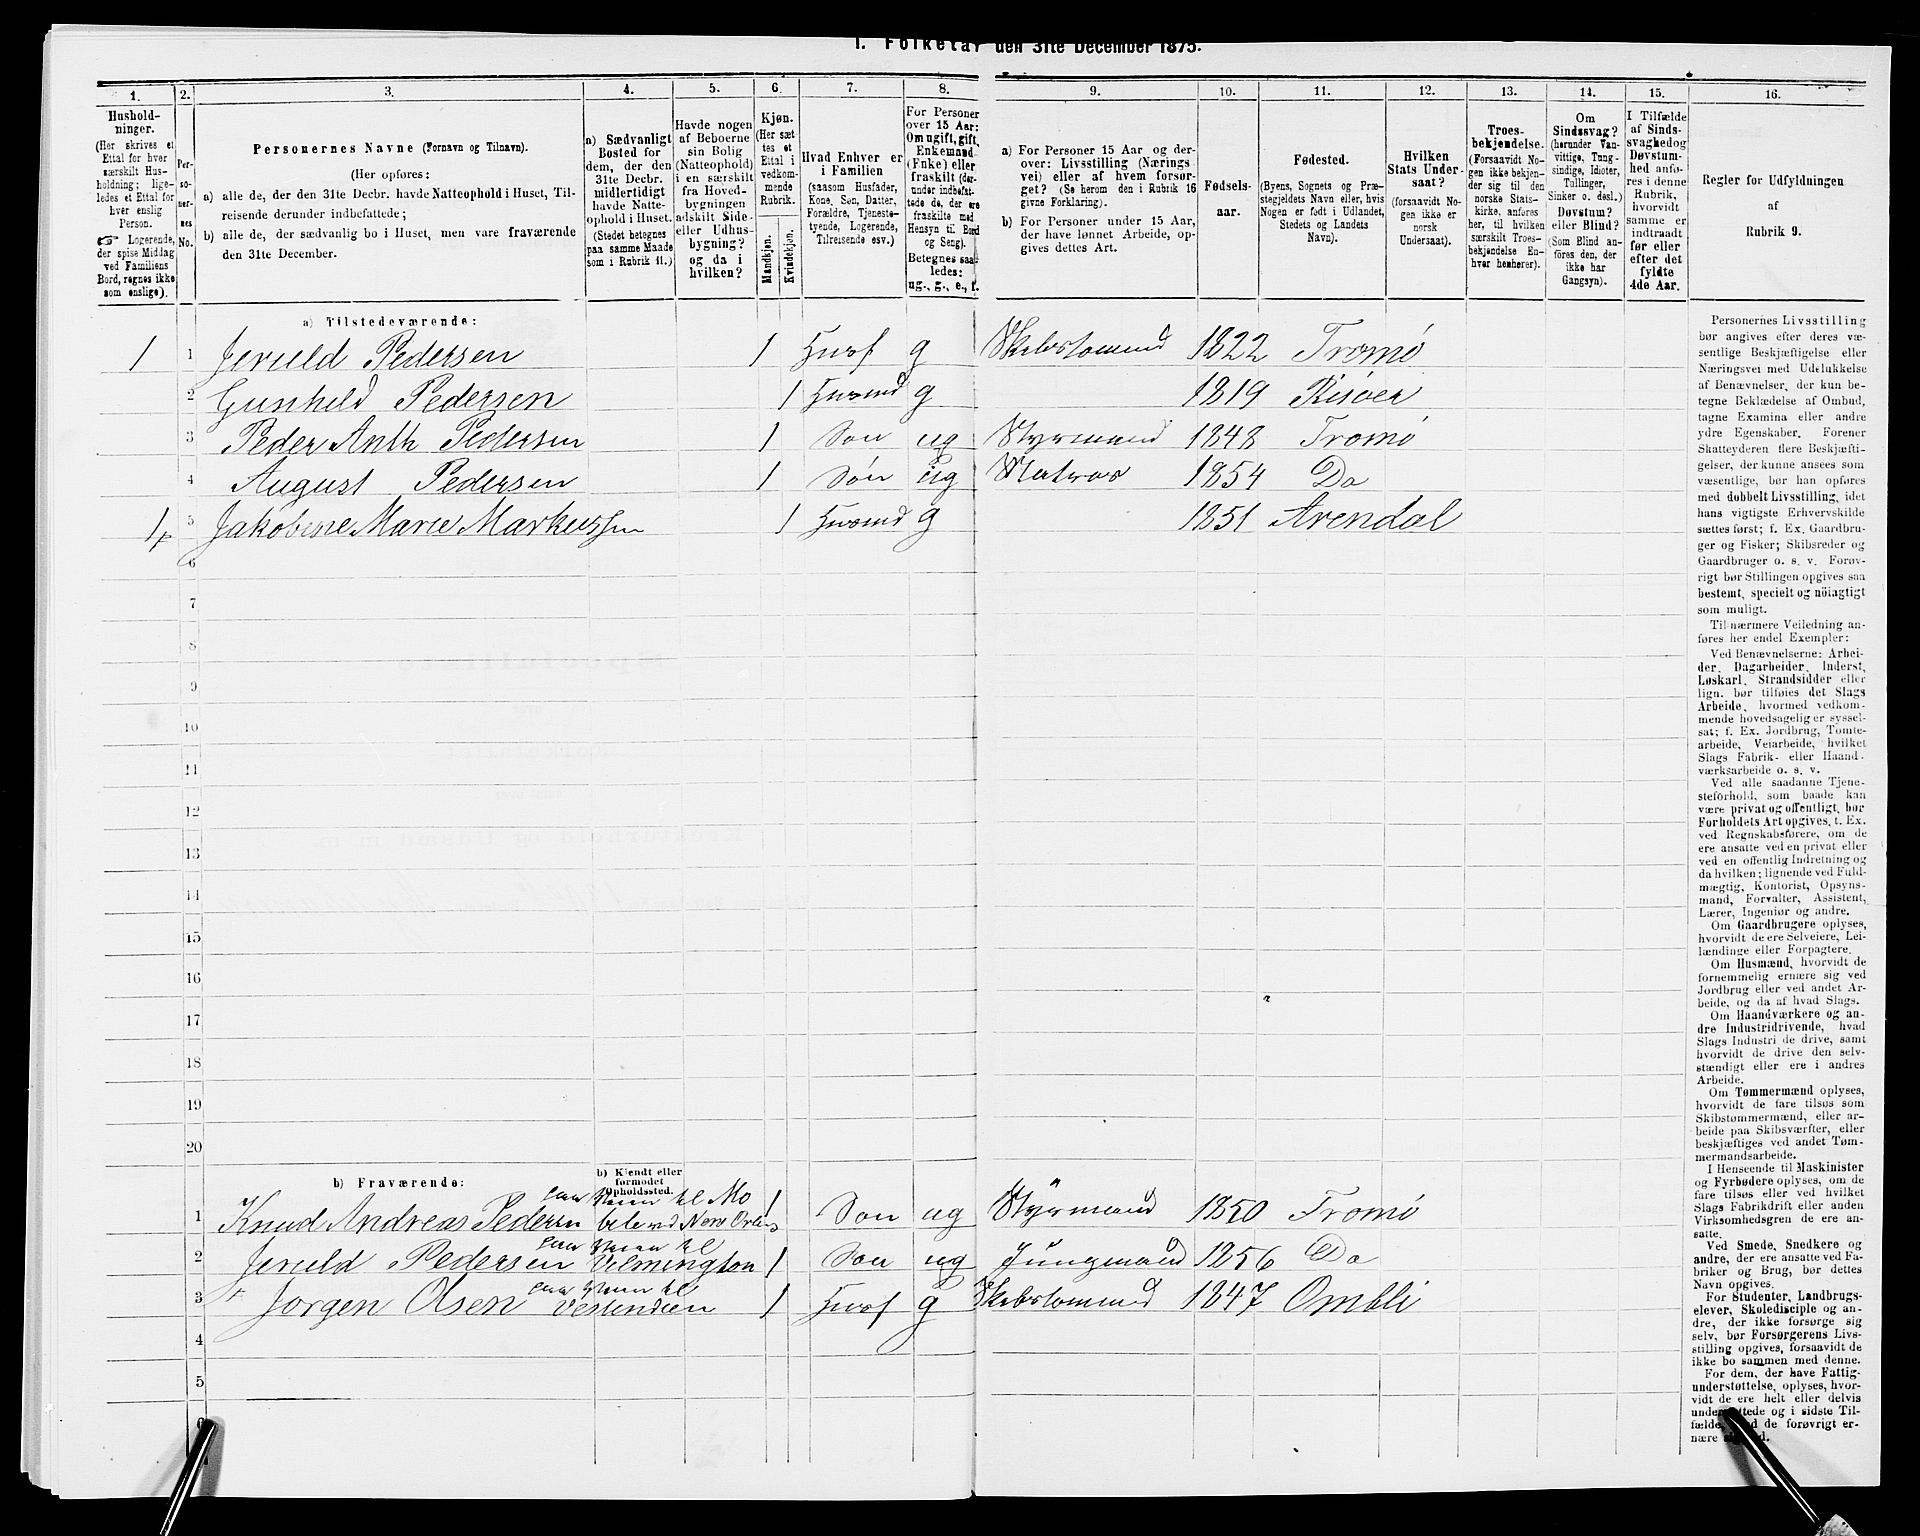 I. Folketal den 31te December 1875.
1. 2. 3. 4. 5. 6. 7. 8. 9. 10. 11. 12. 13. 14. 15. 16.
Hushold-
ninger.
(Her skrives et
Ettal for hver
særskilt Hus-
holdning; lige-
ledes et Ettal for
hver enslig
Person.
☞ Logerende,
der spise Middag
ved Familiens
Bord, regnes ikke
som enslige).
Per-
so-
ner-
nes
No.
Personernes Navne (Fornavn og Tilnavn).
(Her opføres:
a) alle de, der den 31te Decbr. havde Natteophold i Huset, Til-
reisende derunder indbefattede;
b) alle de, der sædvanlig bo i Huset, men vare fraværende
den 31te December.
a) Sædvanligt
Bosted for
dem, der den
31te Decbr.
midlertidigt
havde Natte-
ophold i Huset.
(Stedet betegnes
paa samme Maade
som i Rubrik 11.)
Havde nogen
af Beboerne
sin Bolig
(Natteophold)
i en særskilt
fra Hoved-
bygningen
adskilt Side-
eller Udhus-
bygning?
og da i
hvilken?
Kjøn.
(Her sæt
tes et
Ettal i
vedkom-
mende
Rubrik.
Mandkjøn.
Kvindekjøn.
Hvad Enhver er
i Familien
(saasom Husfader,
Kone, Søn, Datter,
Forældre, Tjeneste-
tyende, Logerende,
Tilreisende osv.)
For Personer
over 15 Aar:
Om ugift, gift,
Enkemand
(Enke) eller
fraskilt (der-
under indbefat-
tede de, der ere
fraskilte med
Hensyn til Bord
og Seng).
Betegnes saa-
ledes:
ug., g., e., f.
a) For Personer 15 Aar og der-
over: Livsstilling (Nærings
vei) eller af hvem forsør-
get? (Se herom den i Rubrik 16
givne Forklaring).
b) For Personer under 15 Aar,
der have lønnet Arbeide, op-
gives dettes Art.
Fødsels-
aar.
Fødested.
(Byens, Sognets og Præ-
stegjeldets Navn eller, hvis
Nogen er født i Udlandet,
Stedets og Landets
Navn).
Hvilken
Stats Under-
saat?
(forsaavidt No-
gen ikke er
norsk
Undersaat).
Troes-
bekjendelse.
(Forsaavidt No-
gen ikke bekjen-
der sig til den
norske Stats-
kirke, anføres
her, til hvilken
særskilt Troes-
bekjendelse En-
hver henhører).
Om
Sindssvag?
(herunder Van-
vittige, Tung-
sindige, Idioter,
Tullinger,
Sinker o. desl.)
Døvstum?
eller Blind?
(Som Blind an-
føres den, der
ikke har
Gangsyn).
I Tilfælde
af Sinds-
svaghed og
Døvstum-
hed anfø-
res i denne
Rubrik,
hvorvidt
samme er
indtraadt
før eller
efter det
fyldte
4de Aar.
Regler for Udfyldningen
af
Rubrik 9.
a) Tilstedeværende:
1 1 Jeruld Pedersen 1 Husf g Skibstømmd 1822 Tromø
2 Gunhild Pedersen 1 Husmd g 1819 Risøer
3 Peder Anth Pedersen 1 Son ug Styrmand 1848 Tromø
4 August Pedersen 1 Søn ug Matros 1854 Do
1 5 Jakobine Marie Markussen 1 Husmd g 1851 Arendal
6
7
8
9
10
11
12
13
14
15
16
17
18
19
20
b) Fraværende:
b) Kjendt eller
formodet
Opholdssted.
1 Knud Andreas Pedersen paa Reise til Mobile ved New Orleans 1 Son ug Styrmand 1850 Tromø
2 Jeruld Pedersen paa Reise til Vilmington 1 Son ug Jungmand 1856 Do
3 Jørgen Olsen paa Reise til Vestendien 1 Husf g Skibstommnd 1847 Ombli
4
5
6
Personernes Livsstilling
bør angives efter deres væ-
sentlige Beskjæftigelse eller
Næringsvei med Udelukkelse
af Benævnelser, der kun be-
tegne Beklædelse af Ombud,
tagne Examina eller andre
ydre Egenskaber. Forener
Skatteyderen flere Beskjæfti-
gelser, der kunne ansees som
væsentlige, bør han opføres
med dobbelt Livsstilling, idet
hans vigtigste Erhvervskilde
sættes først; f. Ex. Gaardbru-
ger og Fisker; Skibsreder og
Gaardbruger o. s. v. Forøv-
rigt bør Stillingen opgives saa
bestemt, specielt og nöiagtigt
som muligt.
Til nærmere Veiledning an-
føres her endel Exempler:
Ved Benævnelserne: Arbei-
der, Dagarbeider, Inderst,
Løskarl, Strandsidder eller
lign. bør tilføies det Slags
Arbeide, hvormed vedkom-
mende hovedsagelig er syssel-
sat; f. Ex. Jordbrug, Tomte-
arbeide, Veiarbeide, hvilket
Slags Fabrik- eller Haand-
værksarbeide o. s. v.
Ved alle saadanne Tjene-
steforhold, som baade kan
være privat og offentligt, bør
Forholdets Art opgives, t. Ex.
ved Regnskabsførere, om de
ere ansatte ved en privat eller
ved en offentlig Indretning og
da hvilken; lignende ved Fuld-
mægtig, Kontorist, Opsyns-
mand, Forvalter, Assistent,
Lærer, Ingeniør og andre.
Om Gaardbrugere oplyses,
hvorvidt de ere Selveiere, Lei-
lændinge eller Forpagtere.
Om Husmænd, hvorvidt de
fornemmelig ernære sig ved
Jordbrug eller ved andet Ar-
beide, og da af hvad Slags.
Om Haandværkere og an-
dre Industridrivende, hvad
Slags Industri de drive, samt
hvorvidt de drive den selv-
stændigt eller ere i andres
Arbeide.
Om Tømmermænd oplyses,
hvorvidt de fare tilsøs som
Skibstømmermænd, eller ar-
beide paa Skibsværfter, eller
beskjæftiges ved andet Tøm-
mermandsarbeide.
I Henseende til Maskinister
og Fyrbødere oplyses, om de
fare tilsøs eller ved hvilket
Slags Fabrikdrift eller anden
Virksomhedsgren de ere an-
satte.
Ved Smede, Snedkere og
andre, der ere ansatte ved Fa-
briker og Brug, bør dettes
Navn opgives.
For Studenter, Landbrugs-
elever, Skoledisciple og an-
dre, der ikke forsørge sig
selv, bør Forsørgerens Livs-
stilling opgives, forsaavidt de
ikke bo sammen med denne.
For dem, der have Fattig-
understøttelse, oplyses, hvor-
vidt de ere helt eller delvis
understøttede og i sidste Til-
fælde, de forøvrigt er-
nære